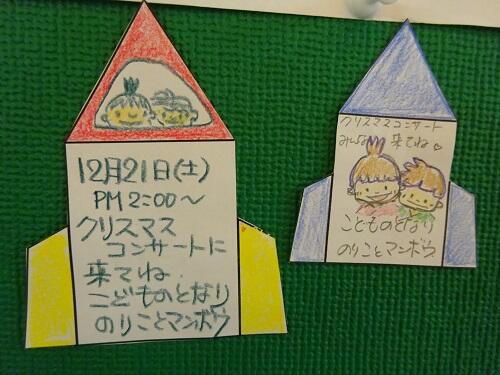 12月21日(土)
PM 2:00〜
クリスマス
コンサートに
来てね.
こどものとなり
のりことマンボウ
クリスマスコンサート
みんな 来てね♡
こどものとなり
のりことマンボウ